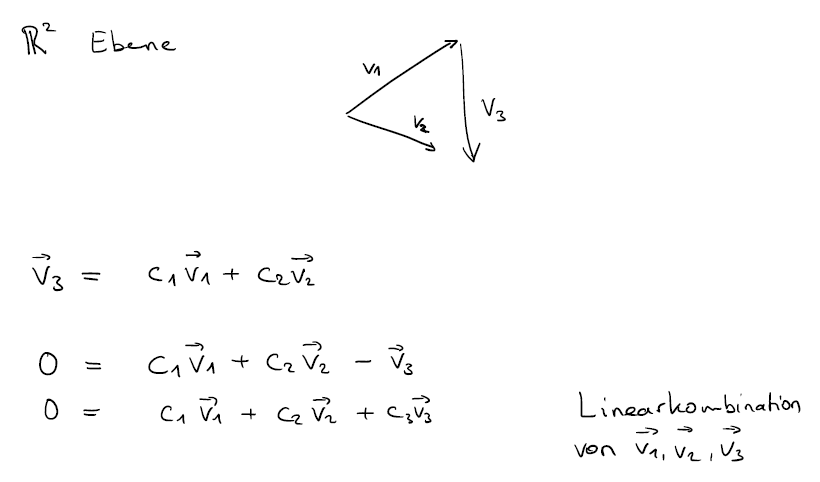 ℝ² Ebene
v₁
v₂
v₃
v⃗₃ = c₁v⃗₁ + c₂v⃗₂
0 = c₁v⃗₁ + c₂v⃗₂ − v⃗₃
0 = c₁v⃗₁ + c₂v⃗₂ + c₃v⃗₃
Linearkombination
von v⃗₁, v⃗₂, v⃗₃